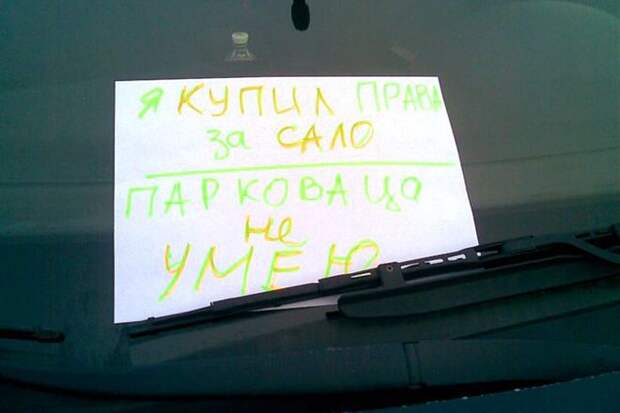 Я КУПИЛ ПРАВА
за САЛО
ПАРКОВАЦО
не
УМЕЮ